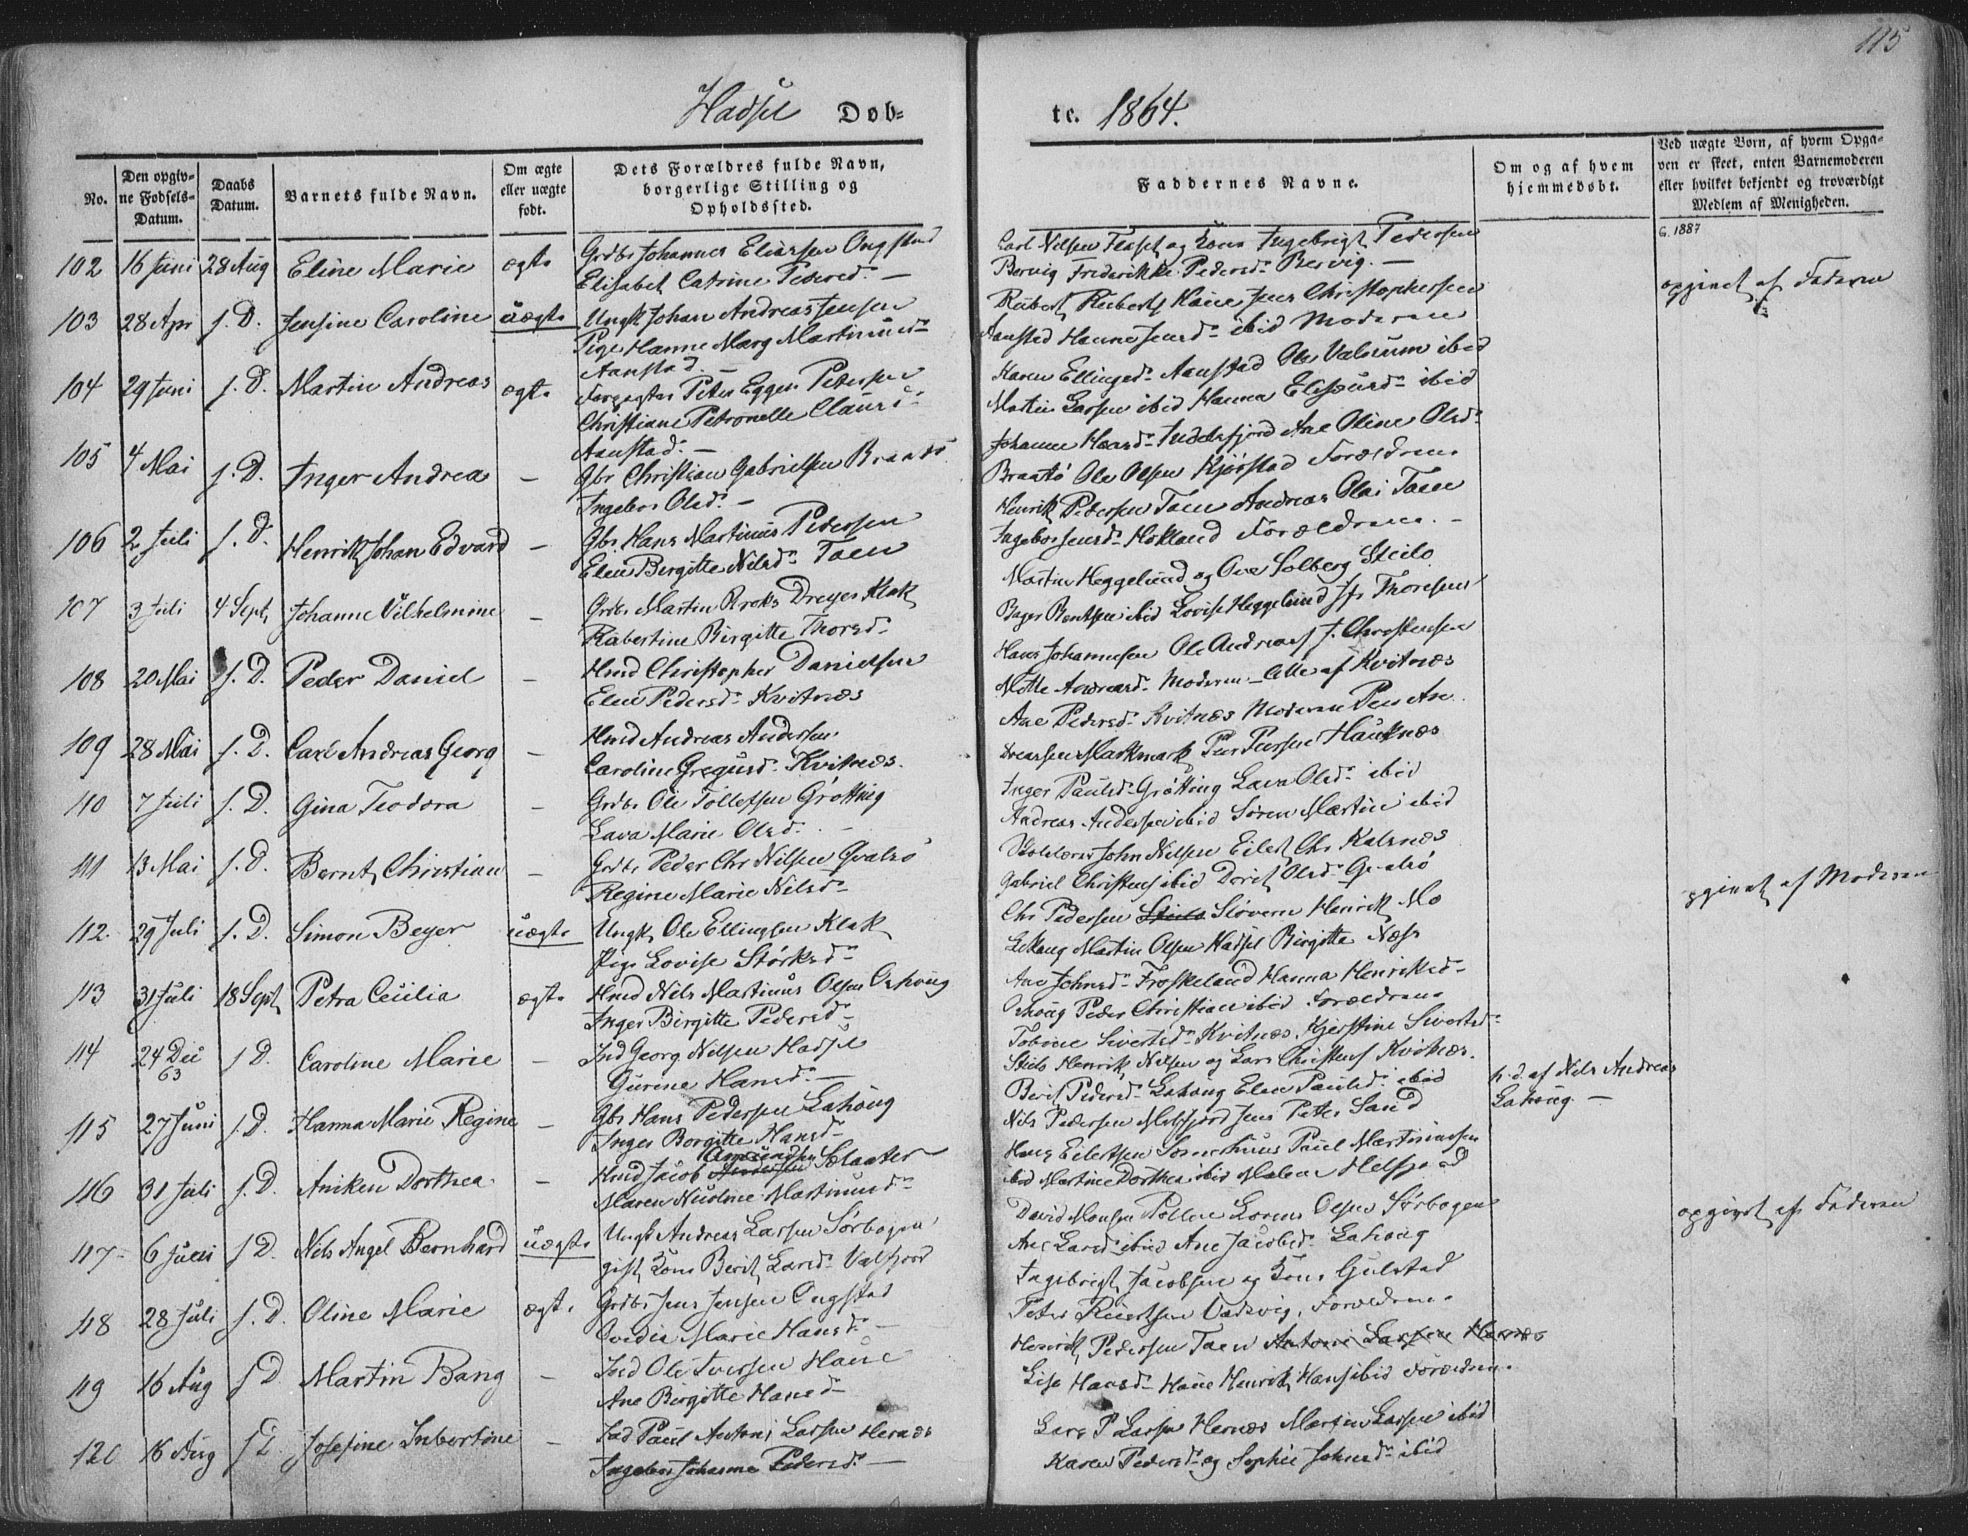 115
Hadsel Dob=
te. 1864.
No.
Den opgiv=
ne Fødsels=
Datum.
Daabs
Datum.
Barnets fulde Navn.
Om ægte
eller uægte
født.
Dets Forældres fulde Navn,
borgerlige Stilling og
Opholdssted.
Faddernes Navne.
Om og af hvem
hjemmedøbt.
Ved uægte Børn, af hvem Opga=
ven er skeet, enten Barnemoderen
eller hvilket bekjendt og troværdigt
Medlem af Menigheden.
G. 1887
102 16 Juni 28 Aug Eline Marie ægte Grdbr Johannes Eliassen Ongstad
Elisabet Catrine Pedersd. —
Carl Nilsen og Kone Ingebrigt Pedersen
Bervig Frederikke Pedersd. Bervig. —
103 28 Apr s. D. Jensine Caroline uægte Ungk Johan Andreas Jensen
Pige Hanne Marg Martinusd.
Aanstad. —
Rubert Haue Jens Christophersen
Aanstad Hanne Jensd. ibid Moderen
opgivet af Faderen
104 29 Juni s. D. Martin Andreas ægte Forpagter Peter Eggen Petersen
Christiane Petronelle Clausd.
Aanstad. —
Karen Ellingsd. Aanstad Ole Valnum ibid
Martin Larsen ibid Hanna Elisæusd. ibid
105 4 Mai s. D. Inger Andrea — Gbr Christian Gabrielsen Braatø
Ingebor Olsd. —
Johanne Indrefjord Ane Oline Olsd.
Braatø Ole Olsen Kjørstad Forældrene
106 2 Juli s. D. Henrik Johan Edvard — Gbr Hans Martinus Pedersen
Elen Birgitte Nilsd. Taen
Henrik Pedersen Taen Andreas Olai Taen
Ingebor Jensd. Hokland Forældrene. —
107 3 Juli 4 Sept Johanne Vilhelmine — Grdbr Martin Dreyer Klak
Rabertine Birgitte Thorsd.
Martin Heggelund og Ove Solberg Steilo
Beyer Berntsen ibid Lovise Heggelund Thoresen
108 20 Mai s. D. Peder Daniel — Hmd Christopher Danielsen
Elen Pedersd. Kvitnæs
Hans Johannesen Ole Andreas J. Christensen
Mette Andreasd. Moderen — alle af Kvitnæs
109 28 Mai s. D. Carl Andreas Georg — Hmd Andreas Andersen
Caroline Gregusd. Kvitnæs.
Ane Pedersd. Kvitnæs Moderen Peder An
dreassen Markmark Peder Hauknæs
110 7 Juli s. D. Gina Teodora — Grdbr Ole Tollefsen Grøtting
Lava Marie Olsd. —
Inger Paulsd. Grøtting Lava Olsd. ibid
Andreas Andersen ibid Søren Martin ibid
111 13 Mai s. D. Bernt Christian — Grdbr Peder Chr Nilsen Qvalsø
Regine Marie Nilsd.
Skolelærer John Nilsen Eilert Chr Kalsnæs
Gabriel Christens ibid Dorit Olsd. Qvalsø
112 29 Juli s. D. Simon Beyer uægte Ungk Ole Ellingsen Klak
Pige Lovise Størksd.
Chr Pedersen Steilo Sløveren Henrik Mo
Lekang Martin Olsen Hadsel Birgitte Næss
opgivet af Moderen
113 31 Juli 18 Sept Petra Cecilia ægte Hmd Nils Martinus Olsen Oshoug
Inger Birgitte Pedersd.
Ane Johnsd. Froskeland Hanna Henriksd.
Oshoug Peder Christian ibid Forældrene
114 24 Dec 63 s. D. Caroline Marie — Ind Georg Nilsen Hadsel
Gurine Hansd. —
Tobine Sivertsd. Kvitnæs, Kjerstine Sivertsd.
Steilo Henrik Nilsen og Lars Christens Kvitnæs.
115 27 Juni s. D. Hanna Marie Regine — Gbr Hans Pedersen Lahoug
Inger Borgitte Hansd.
Berit Pedersd. Lahoug Elen Paulsd. ibid
Nils Pedersen Melfjord Jens Peter Sand
h. d. af Nils Andreas
Lahoug —
116 31 Juli s. D. Aniken Dorthea. — Hmd Jacob Amundsen Sælaater
Maren Nicoline Martinusd.
Hans Eilertsen Somerhuus Paul Martinussen
ibid Martine Dorthea ibid Malene Melfjord
117 6 Juni s. D. Nils Angel Bernhard uægte Ungk Andreas Larsen Sørbogen
gift Kone Berit Larsd. Valfjord
David Monsen Pollen Lorens Olsen Sørbogen
Ane Larsd. ibid Ane Jacobsd. Lahoug
opgivet af Faderen
118 28 Juli s. D. Oline Marie ægte Grdbr Jens Jensen Ongstad
Ovedia Marie Hansd. —
Ingebrigt Jacobsen og Kone Gulstad
Peter Vadsvig. Forældrene
119 16 Aug s D. Martin Bang — Ind Ole Iversen Haue
Ane Birgitte Hansd.
Henrik Pedersen Taen Antoni Larsen Hernæs
Lise Hansd. Haue Henrik Hans ibid Forældrene
120 16 Aug s D. Josefine Inbertine — Ind Paul Antoni Larsen Hernæs
Ingebor Johanne Pedersd. —
Lars P Larsen Hernæs Martin Larsen ibid
Karen Pedersd. og Sophie Johnsd. ibid